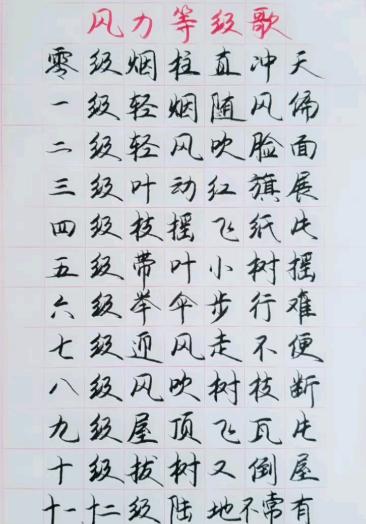 风力等级歌
零级烟柱直冲天
一级轻烟随风偏
二级轻风吹脸面
三级叶动红旗展
四级枝摇飞纸片
五级带叶小树摇
六级举伞步行难
七级迎风走不便
八级风吹树枝断
九级屋顶飞瓦片
十级拔树又倒屋
十一十二级陆地不常有